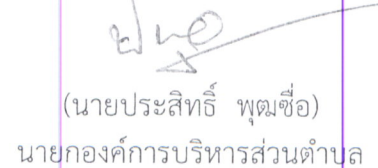 (นายประสิทธิ์ พุฒซื่อ)
นายกองค์การบริหารส่วนตำบล